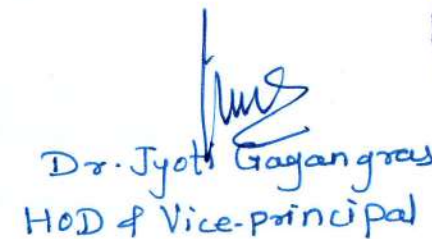 Dr. Jyoti Gagangras
HOD & Vice-principal